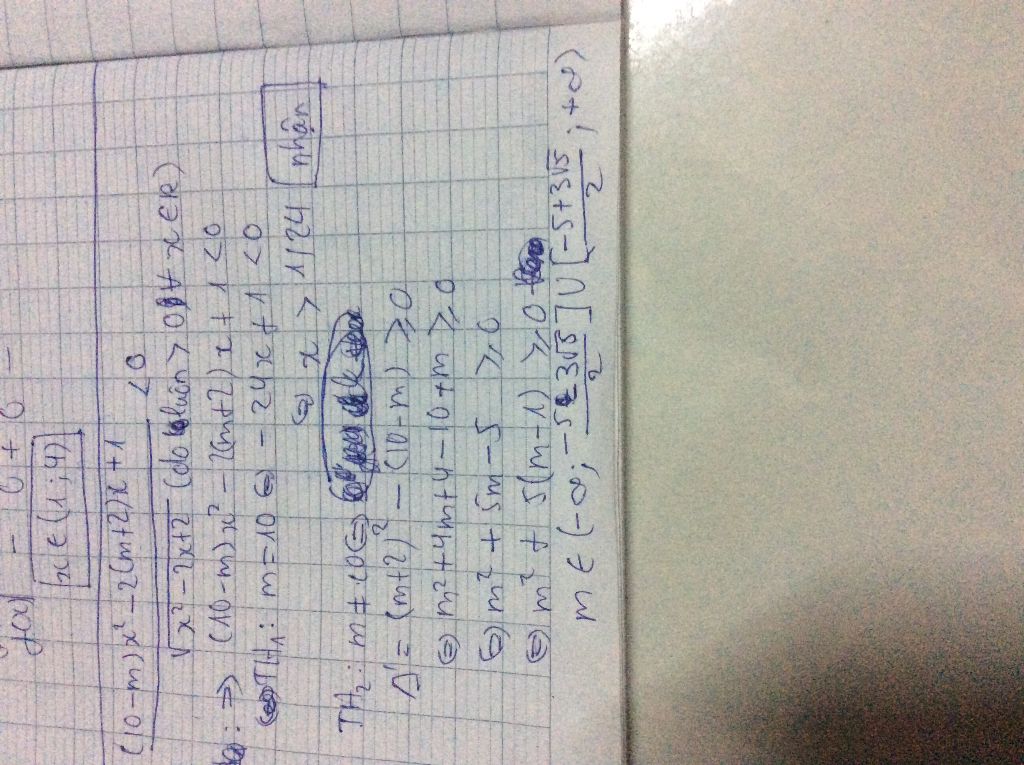 f(x) - 0 + 0 -
x ∈ (1; 4)
(10-m)x² - 2(m+2)x + 1
< 0
√x² - 2x + 2 (do luôn > 0, ∀ x ∈ R)
: ⇒) (10-m)x² - 2(m+2)x + 1 < 0
TH₁: m = 10 ⇔ - 24x + 1 < 0
⇔ x > 1/24 nhận
TH₂: m ≠ 10 ⇔
Δ' = (m+2)² - (10-m) ≥ 0
⇔ m² + 4m + 4 - 10 + m ≥ 0
⇔ m² + 5m - 5 ≥ 0
⇔ m² + 5(m-1) ≥ 0
m ∈ (-∞; -5 - 3√5 / 2] ∪ [-5 + 3√5 / 2; +∞)